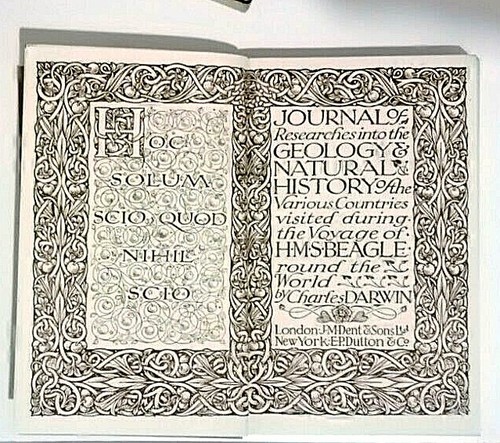 HOC
SOLUM
SCIO, QUOD
NIHIL
SCIO
JOURNAL of
Researches into the
GEOLOGY &
NATURAL
HISTORY of the
Various Countries
visited during
the Voyage of
H.M.S. BEAGLE
round the
World
by Charles DARWIN
London: J·M·Dent & Sons Ltd
New York: E.P. Dutton & Co